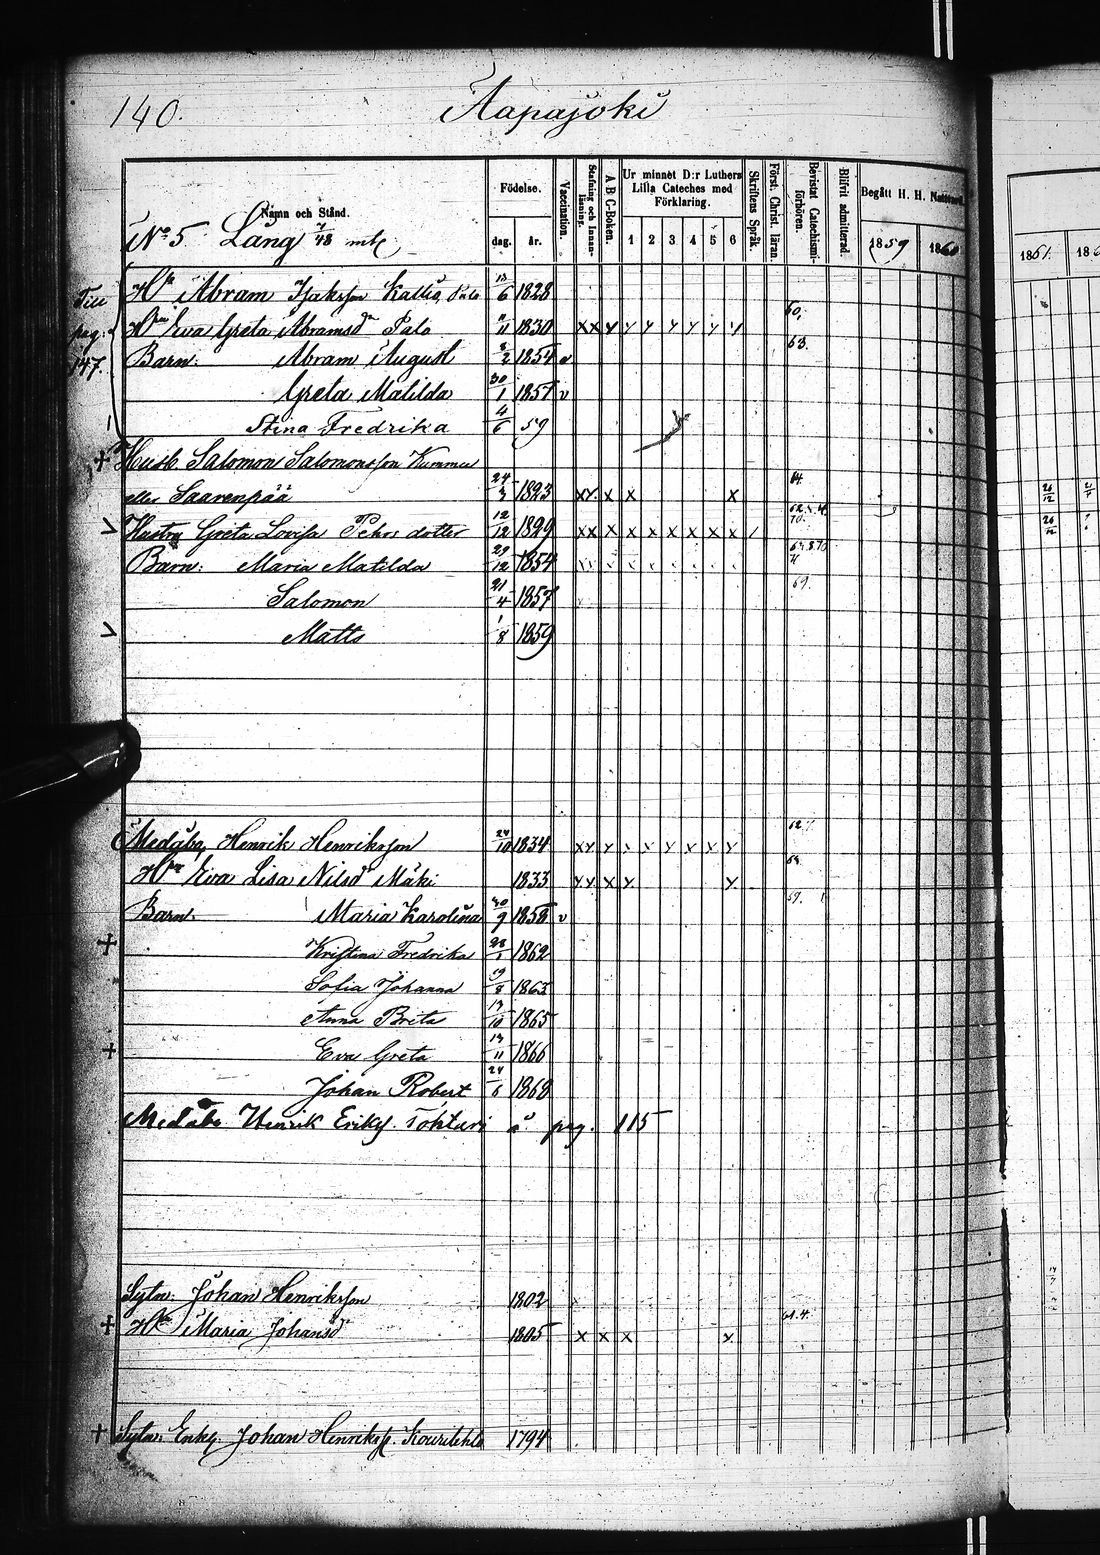 140.
Aapajoki
Namn och Stånd.
Födelse.
dag.
år.
Vaccination.
Stafning och Innanläsning.
A B C-Boken.
Ur minnet D:r Luthers Lilla Cateches med Förklaring.
1 2 3 4 5 6
Skriftens Språk.
Först. Christ. läran.
Bevistat Catechismiförhören.
Blifvit admitterad.
Begått H. H. Nattvard.
1859 1860
1861.
No 5 Lång 7/48 mtl
Till pag. 147.
Hn Abram Isaksson Kallio, Palo 13/6 1828
Hn Eva Greta Abramsd Palo 11/11 1830 x x y y y y y y y 60,
Barn: Abram August 8/2 1854 v 63.
Greta Matilda 30/1 1857 v
Stina Fredrika 4/6 59
+ Husb. Salomon Salomonsson Kummu
eller Saarenpää 24/3 1823 x y x x x 64
Hustru Greta Lovisa Pehrs dotter 12/12 1829 x x x x x x x x x
Barn: Maria Matilda 29/12 1854
Salomon 21/4 1857 69
Matts 1/8 1859
Medåbo Henrik Henriksson 24/10 1834 x y y x y y x x y 62
Hn Eva Lisa Nilsd Mäki 1833 y y x y y
Barn: Maria Karolina 30/9 1858 v 69.
+ Kristina Fredrika 28/1 1862
Sofia Johanna 19/8 1863
Anna Brita 13/10 1865
+ Eva Greta 13/11 1866
Johan Robert 24/6 1868
Medåbo Henrik Eriks. Tohturi å pag. 115
Sytn: Johan Henriksson 1802
+ Hn Maria Johansd 1805 x x x y 61.4.
+ Sytn. Enkl. Johan Henrikss. Kourilehto 1794